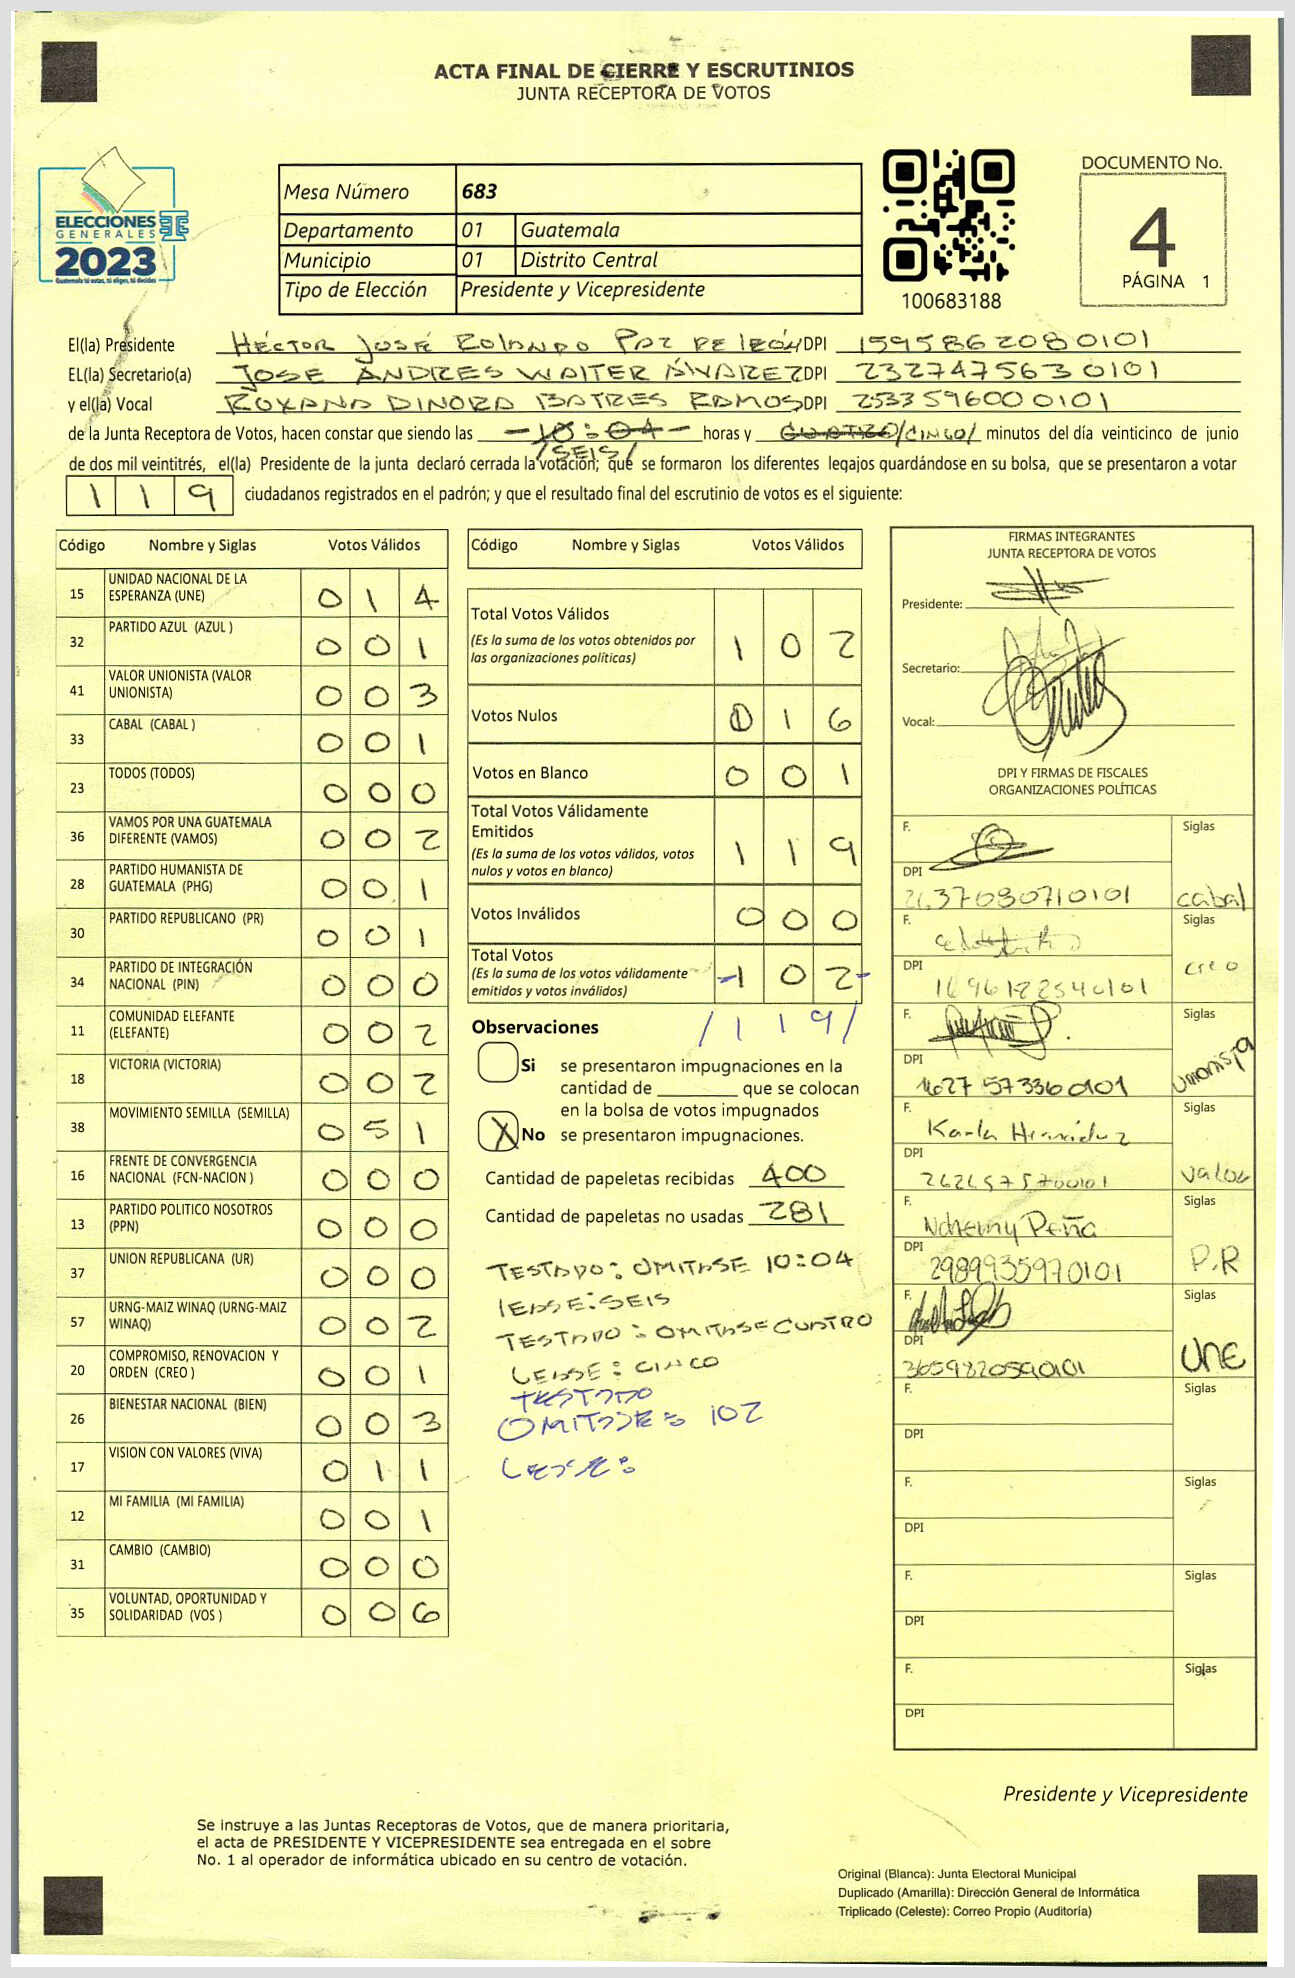 ACTA FINAL DE CIERRE Y ESCRUTINIOS
JUNTA RECEPTORA DE VOTOS
ELECCIONES
GENERALES
2023
Guatemala tú votas, tú eliges, tú decides
Mesa Número 683
Departamento 01 Guatemala
Municipio 01 Distrito Central
Tipo de Elección Presidente y Vicepresidente
100683188
DOCUMENTO No.
4
PÁGINA 1
El(la) Presidente HÉCTOR JOSÉ ROLANDO PAZ DE LEÓN DPI 1595862080101
EL(la) Secretario(a) JOSE ANDRES WALTER ÁLVAREZ DPI 2327475630101
y el(la) Vocal ROXANA DINORA BATRES RAMOS DPI 2533596000101
de la Junta Receptora de Votos, hacen constar que siendo las -10:04- horas y CUATRO/CINCO/ minutos del día veinticinco de junio
/SEIS/
de dos mil veintitrés, el(la) Presidente de la junta declaró cerrada la votación; que se formaron los diferentes legajos guardándose en su bolsa, que se presentaron a votar
1 1 9 ciudadanos registrados en el padrón; y que el resultado final del escrutinio de votos es el siguiente:
Código Nombre y Siglas Votos Válidos
15 UNIDAD NACIONAL DE LA ESPERANZA (UNE) 0 1 4
32 PARTIDO AZUL (AZUL ) 0 0 1
41 VALOR UNIONISTA (VALOR UNIONISTA) 0 0 3
33 CABAL (CABAL ) 0 0 1
23 TODOS (TODOS) 0 0 0
36 VAMOS POR UNA GUATEMALA DIFERENTE (VAMOS) 0 0 2
28 PARTIDO HUMANISTA DE GUATEMALA (PHG) 0 0 1
30 PARTIDO REPUBLICANO (PR) 0 0 1
34 PARTIDO DE INTEGRACIÓN NACIONAL (PIN) 0 0 0
11 COMUNIDAD ELEFANTE (ELEFANTE) 0 0 2
18 VICTORIA (VICTORIA) 0 0 2
38 MOVIMIENTO SEMILLA (SEMILLA) 0 5 1
16 FRENTE DE CONVERGENCIA NACIONAL (FCN-NACION ) 0 0 0
13 PARTIDO POLITICO NOSOTROS (PPN) 0 0 0
37 UNION REPUBLICANA (UR) 0 0 0
57 URNG-MAIZ WINAQ (URNG-MAIZ WINAQ) 0 0 2
20 COMPROMISO, RENOVACION Y ORDEN (CREO ) 0 0 1
26 BIENESTAR NACIONAL (BIEN) 0 0 3
17 VISION CON VALORES (VIVA) 0 1 1
12 MI FAMILIA (MI FAMILIA) 0 0 1
31 CAMBIO (CAMBIO) 0 0 0
35 VOLUNTAD, OPORTUNIDAD Y SOLIDARIDAD (VOS ) 0 0 6
Código Nombre y Siglas Votos Válidos
Total Votos Válidos 1 0 2
(Es la suma de los votos obtenidos por
las organizaciones políticas)
Votos Nulos 0 1 6
Votos en Blanco 0 0 1
Total Votos Válidamente
Emitidos 1 1 9
(Es la suma de los votos válidos, votos
nulos y votos en blanco)
Votos Inválidos 0 0 0
Total Votos
(Es la suma de los votos válidamente -1 0 2-
emitidos y votos inválidos)
/1 1 9/
Observaciones
Si se presentaron impugnaciones en la
cantidad de ________ que se colocan
en la bolsa de votos impugnados
X No se presentaron impugnaciones.
Cantidad de papeletas recibidas 400
Cantidad de papeletas no usadas 281
TESTADO: OMITASE 10:04
LEASE: SEIS
TESTADO: OMITASE CUATRO
LEASE: CINCO
TESTADO
OMITASE: 102
LEASE:
FIRMAS INTEGRANTES
JUNTA RECEPTORA DE VOTOS
Presidente:
Secretario:
Vocal:
DPI Y FIRMAS DE FISCALES
ORGANIZACIONES POLÍTICAS
F. Siglas
DPI 2637080710101 cabal
F. Siglas
DPI 1696182540101 creo
F. Siglas
DPI 1627573360101 Unionista
F. Karla Hernández Siglas
DPI 2626575700101 valor
F. Nohemy Peña Siglas
DPI 2989935970101 P.R
F. Siglas
DPI 3659820590101 UNE
F. Siglas
DPI
F. Siglas
DPI
F. Siglas
DPI
F. Siglas
DPI
Presidente y Vicepresidente
Se instruye a las Juntas Receptoras de Votos, que de manera prioritaria,
el acta de PRESIDENTE Y VICEPRESIDENTE sea entregada en el sobre
No. 1 al operador de informática ubicado en su centro de votación.
Original (Blanca): Junta Electoral Municipal
Duplicado (Amarilla): Dirección General de Informática
Triplicado (Celeste): Correo Propio (Auditoría)